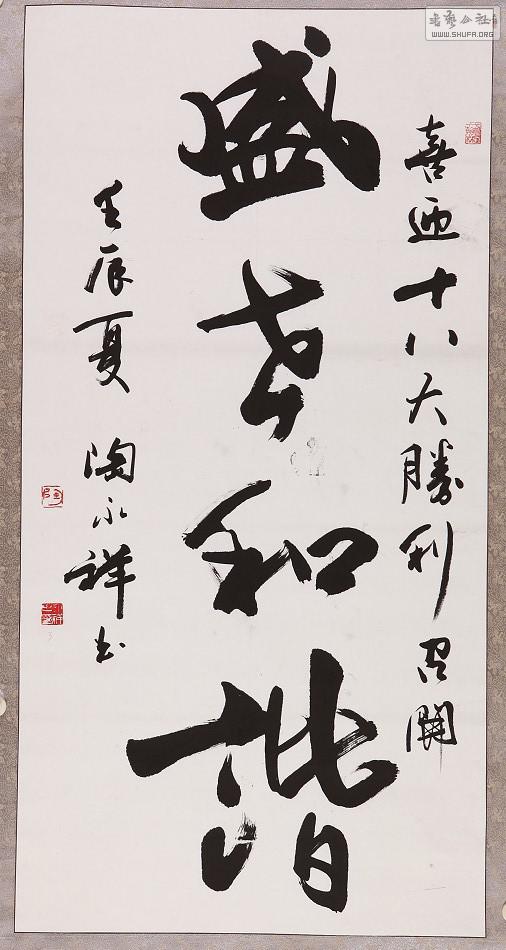 喜迎十八大勝利召開
盛世和谐
壬辰夏 陶永祥书
书艺公社
WWW.SHUFA.ORG